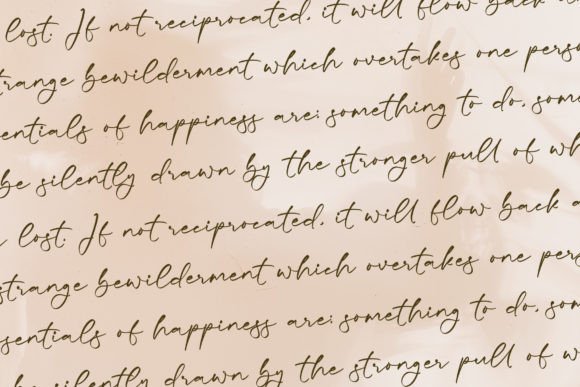 lost. If not reciprocated, it will flow back
strange bewilderment which overtakes one perso
sentials of happiness are: something to do, som
be silently drawn by the stronger pull of wh
lost. If not reciprocated, it will flow back a
strange bewilderment which overtakes one pers
sentials of happiness are: something to do, som
be silently drawn by the stronger pull of w